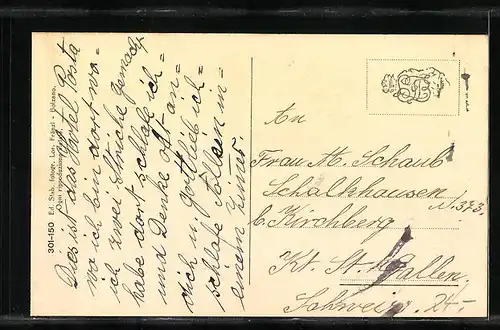 Dies ist das Hotel Posta
wo ich bin dort wo
ich zwei Striche gemacht
habe dort schlafe ich
und Denke oft an
dich u. Gottlieb ich
schlafe allein in
einem Zimmer.
301-150 Ed. Stab. fotogr. Leo. Fränzl - Bolzano.
An
Frau M. Schaub
Schalkhausen
N. 373.
b. Kirchberg
Kt. St. Gallen
Schweiz